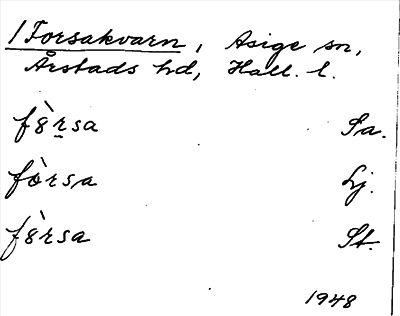 /Forsakvarn, Asige sn,
Årstads hd, Hall. l.
fȣ̀rsa Sa.
fòrsa Lj.
fȣ̀rsa St.
1948